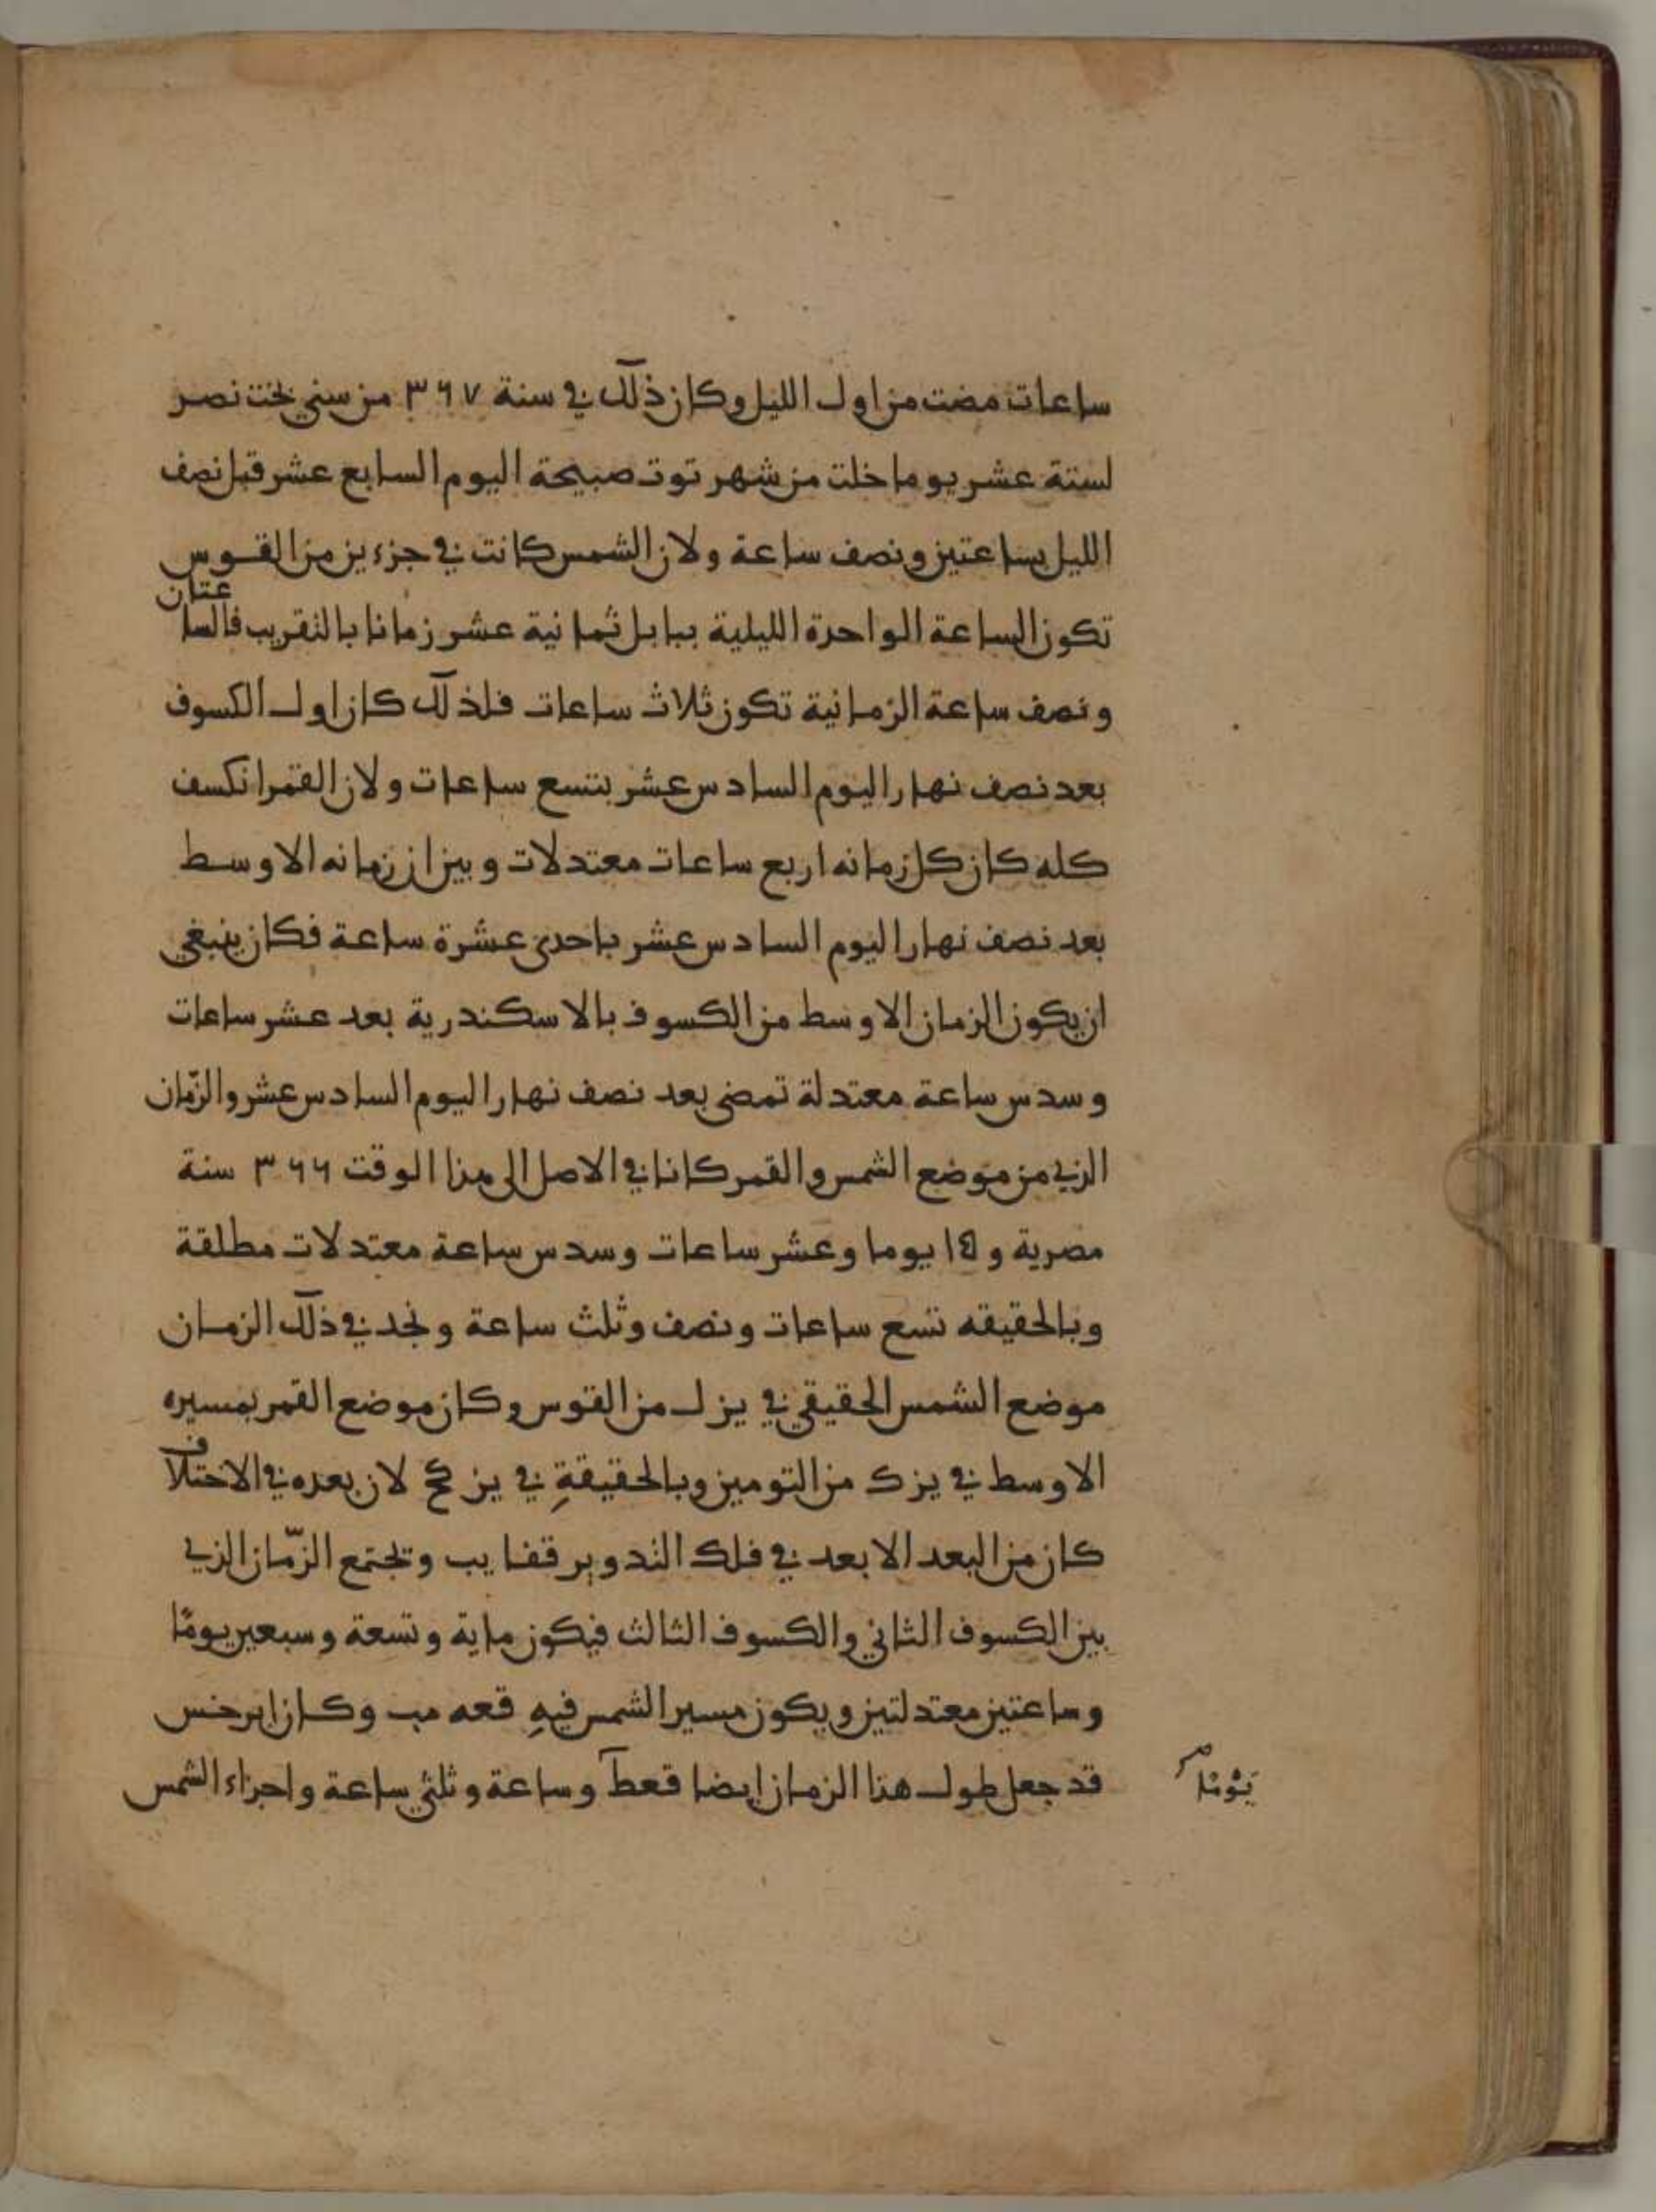 ساعات مضت من اول الليل وكان ذلك في سنة ٣٦٧ من سني بخت نصر
لستة عشر يوما خلت من شهر توت صبيحة اليوم السابع عشر قبل نصف
الليل بساعتين ونصف ساعة ولان الشمس كانت في جزءين من القوس
تكون الساعة الواحدة الليلية ببابل ثمانية عشر زمانا بالتقريب فالساعتان
ونصف ساعة الزمانية تكون ثلاث ساعات فلذلك كان اول الكسوف
بعد نصف نهار اليوم السادس عشر بتسع ساعات ولان القمر انكسف
كله كان كل زمانه اربع ساعات معتدلات وبين ان زمانه الاوسط
بعد نصف نهار اليوم السادس عشر باحدى عشرة ساعة فكان ينبغي
ان يكون الزمان الاوسط من الكسوف بالاسكندرية بعد عشر ساعات
وسدس ساعة معتدلة تمضي بعد نصف نهار اليوم السادس عشر والزّمان
الذي من موضع الشمس والقمر كانا في الاصل الى هذا الوقت ٣٦٦ سنة
مصرية و ١٥ يوما وعشر ساعات وسدس ساعة معتدلات مطلقة
وبالحقيقه تسع ساعات ونصف وثلث ساعة ونجد في ذلك الزمان
موضع الشمس الحقيقي في يز ل من القوس وكان موضع القمر بمسيره
الاوسط في يز ك من التومين وبالحقيقةِ في يز كح لان بعده في الاختلاف
كان من البعد الابعد في فلك التدوير قفا يب وتجتمع الزّمان الذي
بين الكسوف الثاني والكسوف الثالث فيكون ماية وتسعة وسبعين يومًا
وساعتين معتدلتين ويكون مسير الشمس فيهِ قعه مب وكان ابرخس
قد جعل طول هذا الزمان ايضا قعط وساعة وثلثي ساعة واجزاء الشمس
يَوْمًا